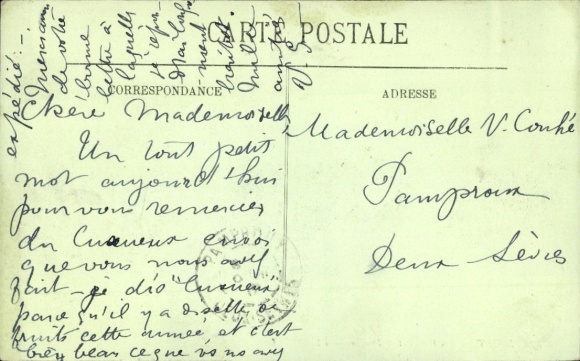 CARTE POSTALE
CORRESPONDANCE
ADRESSE
Chère Mademoiselle,
Un tout petit
mot aujourd'hui
pour vous remercier
du luxueux envoi
que vous nous avez
fait - je dis "luxueux"
parce qu'il y a disette de
fruits cette année, et c'est
bien beau ce que vs ns avez
expédié. -
Merci aussi
de votre
bonne
lettre à
laquelle
je
ment
bientôt.
Mille
amitiés
Mademoiselle V. Couhé
Pamproux
Deux Sèvres